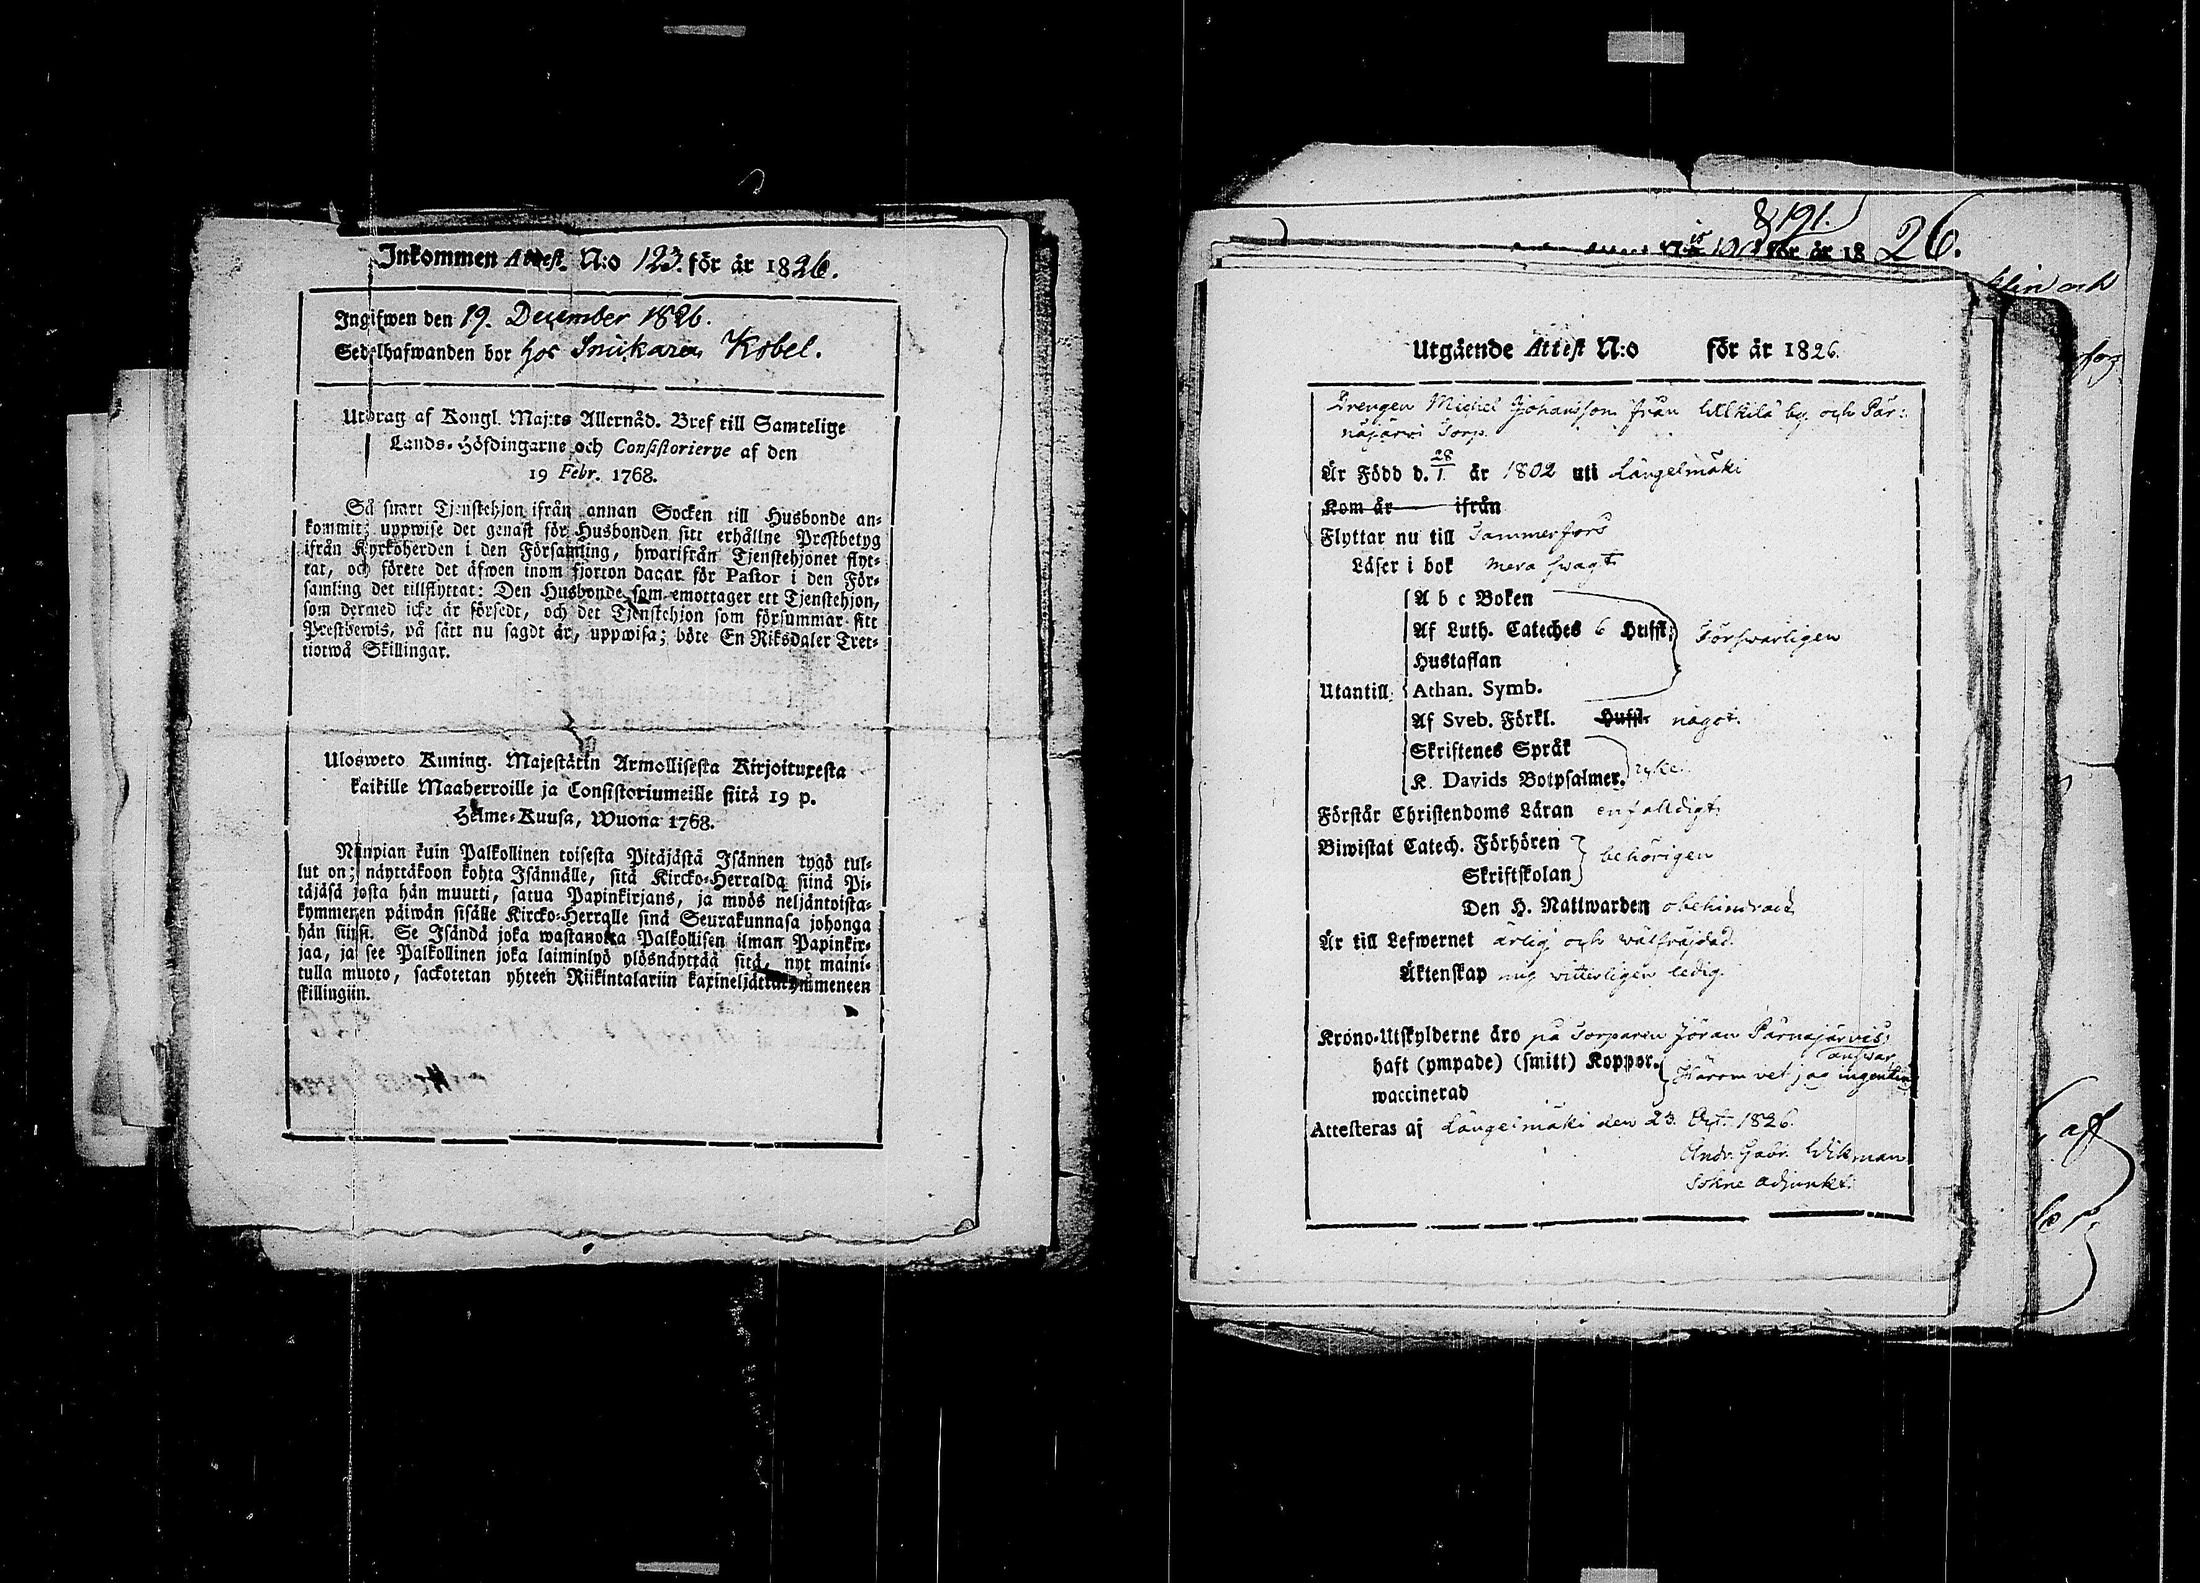 Inkommen Attest. N:o 123. för år 1826.
Ingifwen den 19. December 1826.
Sedelhafwanden bor hos Snickaren Kobel.
Utdrag af Kongl. Maj:ts Allernåd. Bref till Samtelige
Lands-Höfdingarne och Consistorierne af den
19 Febr. 1768.
Så snart Tjenstehjon ifrån annan Socken till Husbonde an-
kommit; uppwise det genast för Husbonden sitt erhållne Prestbetyg
ifrån Kyrkoherden i den Församling, hwarifrån Tjenstehjonet flyt-
tat, och förete det äfwen inom fjorton dagar för Pastor i den För-
samling det tillflyttat: Den Husbonde som emottager ett Tjenstehjon,
som dermed icke är försedt, och det Tjenstehjon som försummar sitt
Prestbewis, på sätt nu sagdt är, uppwisa; böte En Riksdaler Tret-
tiotwå Skillingar.
Ulosweto Kuning. Majestätin Armollisesta Kirjoituxesta
kaikille Maaherroille ja Consistoriumeille siitä 19 p.
Helme-Kuusa, Wuona 1768.
Niinpian kuin Palkollinen toisesta Pitäjästä Isännen tygö tul-
lut on; näyttäkoon kohta Isännälle, sitä Kircko-Herralda siinä Pi-
täjäsä josta hän muutti, satua Papinkirjans, ja myös neljäntoista-
kymmenen päiwän sisälle Kircko-Herralle sinä Seurakunnasa johonga
hän siirsi. Se Isändä joka wastanotta Palkollisen ilman Papinkir-
jaa, ja see Palkollinen joka laiminlyö ylösnäyttää sitä, nyt maini-
tulla muoto, sackotetan yhteen Riikintalariin kaxineljättäkymmeneen
skillingiin.
191.
för år 1826.
Utgående Attest N:o för år 1826.
Drengen Michel Johansson från Wilkilä by och Pär-
näjärwi Torp.
Är Född d. 28/1 år 1802 uti Längelmäki
Kom år ifrån
Flyttar nu till Tammerfors
Läser i bok mera swagt
A b c Boken
Af Luth. Cateches 6 Huffst; Förswarligen
Hustaflan
Utantill Athan. Symb.
Af Sveb. Förkl. Huffst. något.
Skriftenes Språk
K. Davids Botpsalmer. icke.
Förstår Christendoms Läran enfaldigt
Biwistat Catech. Förhören behörigen
Skriftskolan
Den H. Nattwarden obehindrad
Är till Lefwernet ärlig och wälfräjdad.
Äktenskap mig vitterligen ledig.
Krono-Utskylderne äro på Torparen Jöran Pärnajärvis
answar
haft (ympade) (smitt) Koppor. Härom vet jag ingenting
waccinerad
Attesteras af Längelmäki den 23. Oct. 1826.
Andr. Gabr. Wikman
Sokne Adjunkt.